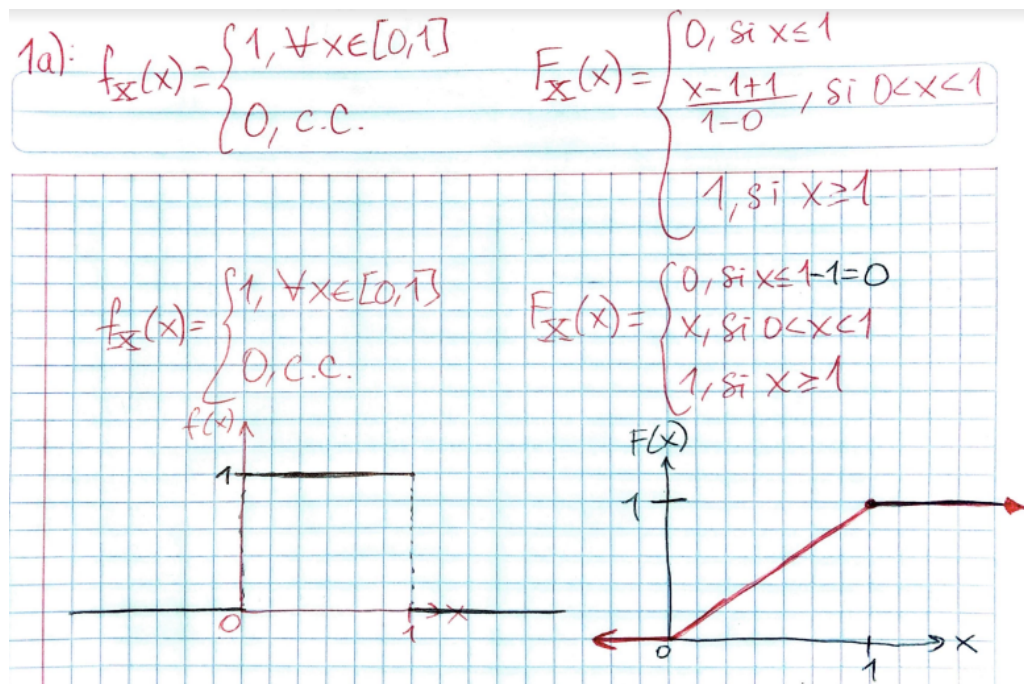 1a): f_X(x) = { 1, ∀x∈[0,1]
0, c.c.
F_X(x) = { 0, si x≤1
x-1+1/1-0, si 0<x<1
1, si x≥1
f_X(x) = { 1, ∀x∈[0,1]
0, c.c.
F_X(x) = { 0, si x≤1-1=0
x, si 0<x<1
1, si x≥1
f(x)
1
0
1
x
F(x)
1
0
1
x